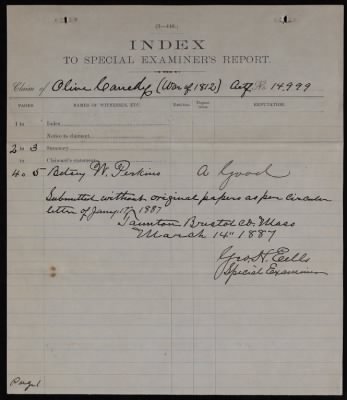 (3—446.)
INDEX
TO SPECIAL EXAMINER'S REPORT.
Claim of Olive Caucky (War of 1812) Ctf No. 14.999
PAGES. NAMES OF WITNESSES, ETC. Exhibit. REPUTATION.
1 to Index
Notice to claimant
2 to 3 Summary
to Claimant's statement
4 to 5 Betsey W. Perkins A Good
Submitted without original papers as per circular
letter of Jany. 17th 1887
Taunton Bristol Co. Mass
March 14" 1887
Geo. H. Eells
Special Examiner